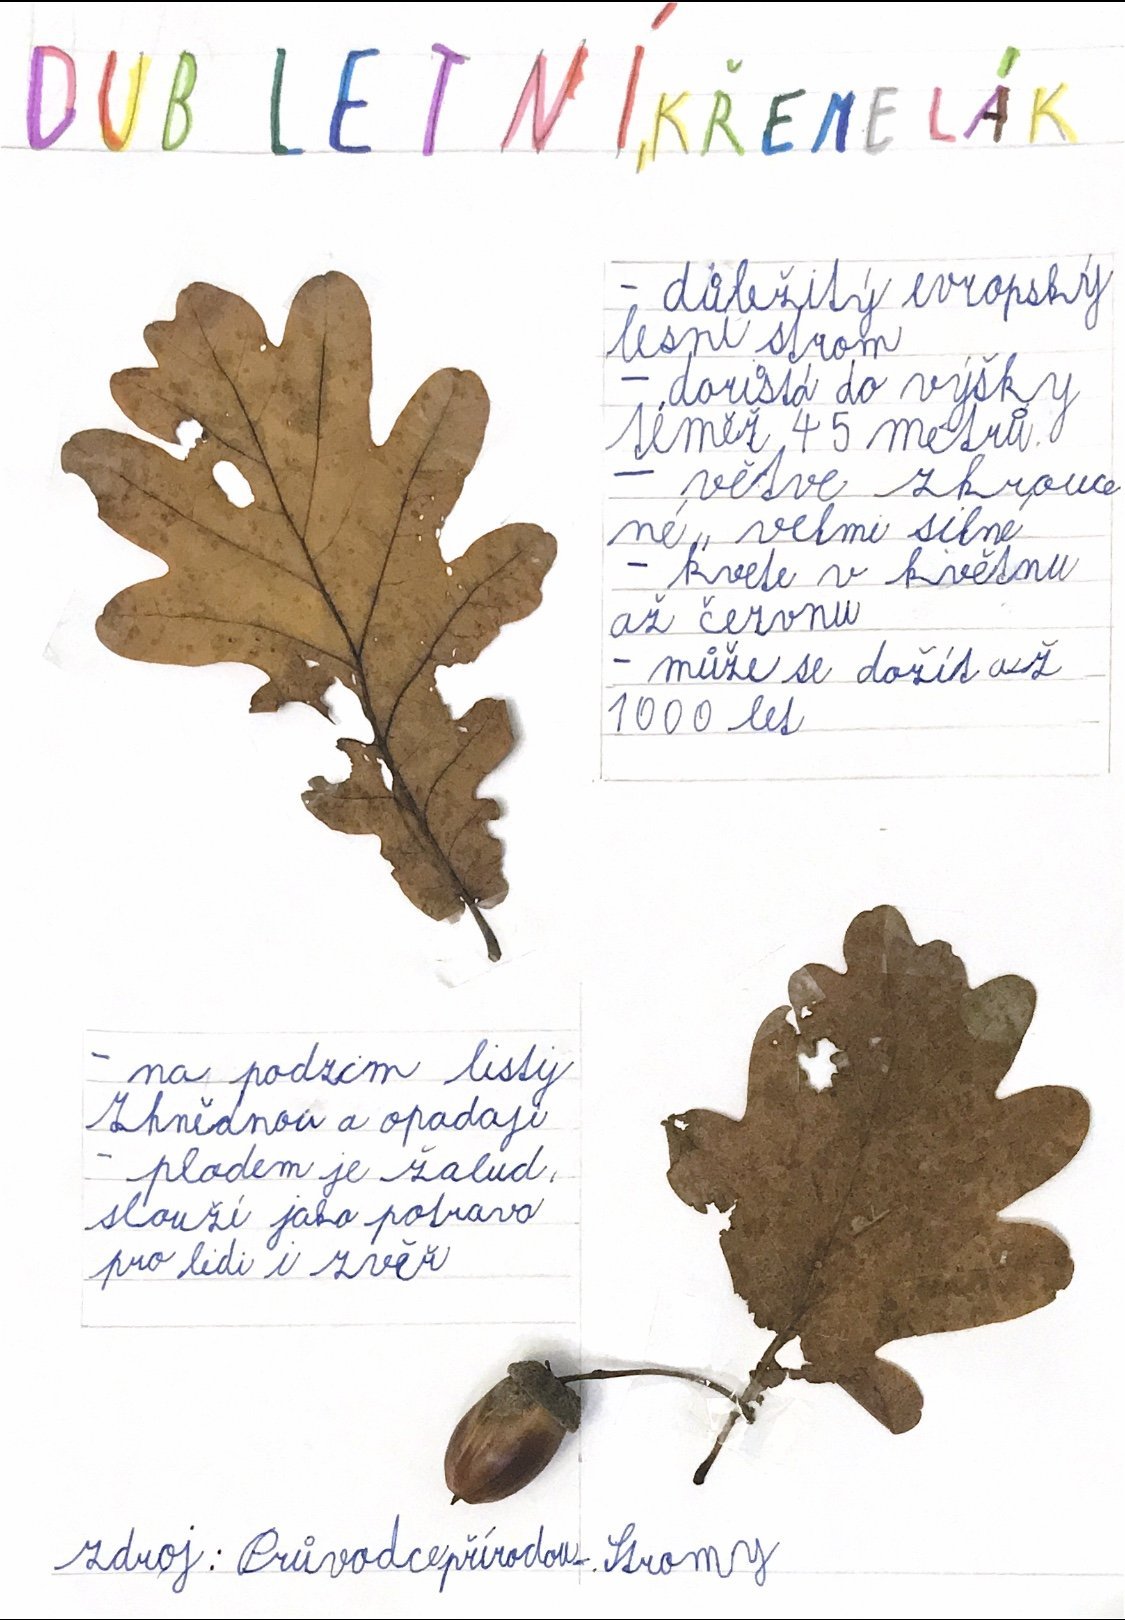 DUB LETNÍ, KŘEMELÁK
- důležitý evropský
lesní strom
- dorůstá do výšky
téměř 45 metrů.
- větve zkrouce
né,, velmi silné
- kvete v květnu
až červnu
- může se dožít až
1000 let
- na podzim listy
zhnědnou a opadají
- plodem je žalud,
slouží jako potrava
pro lidi i zvěř
zdroj: Průvodce přírodou-. Stromy